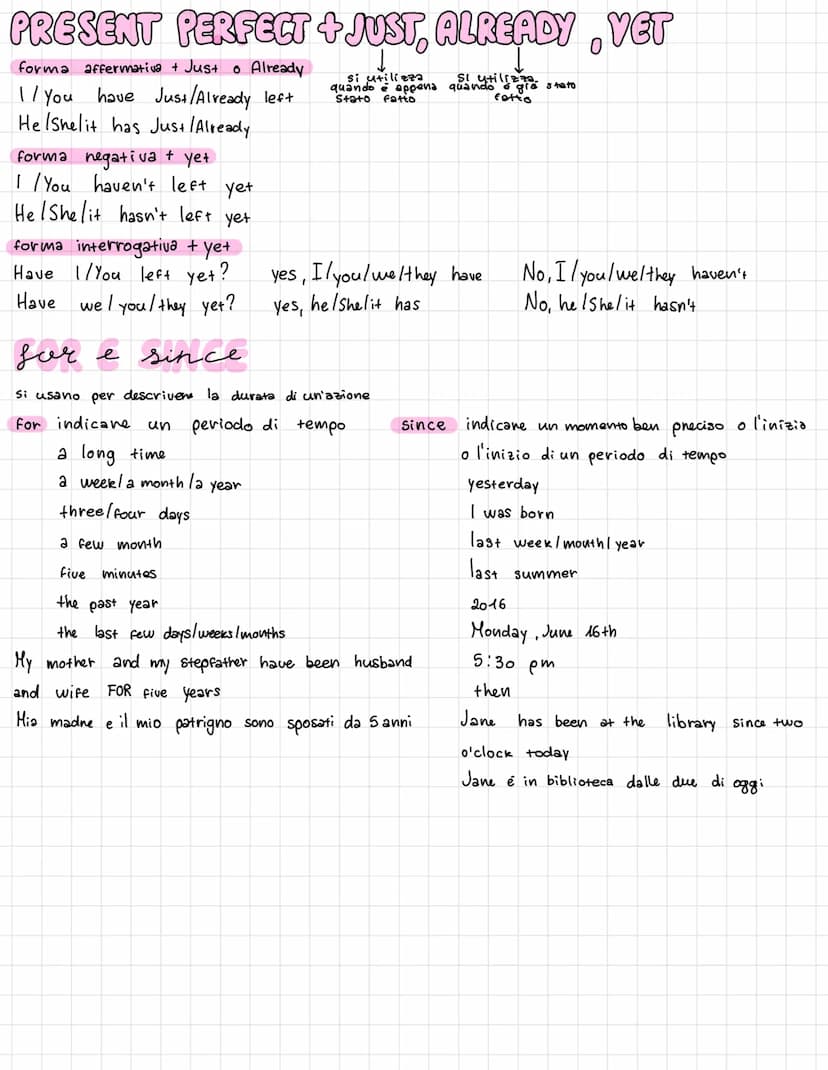 PRESENT PERFECT + JUST, ALREADY, YET
forma affermativa + Just o Already
si utilizza quando è appena stato fatto
si utilizza quando è già stato fatto
I/You have Just/Already left
He/She/it has Just/Already
forma negativa + yet
I/You haven't left yet
He/She/it hasn't left yet
forma interrogativa + yet
Have I/You left yet? yes, I/you/we/they have No, I/you/we/they haven't
Have we/you/they yet? yes, he/She/it has No, he/She/it hasn't
for e since
si usano per descrivere la durata di un'azione
For indicare un periodo di tempo
a long time
a week/a month/a year
three/four days
a few month
five minutes
the past year
the last few days/weeks/months
My mother and my stepfather have been husband
and wife FOR five years
Mia madre e il mio patrigno sono sposati da 5 anni
since indicare un momento ben preciso o l'inizio
o l'inizio di un periodo di tempo
yesterday
I was born
last week/month/year
last summer
2016
Monday, June 16th
5:30 pm
then
Jane has been at the library since two
o'clock today
Jane é in biblioteca dalle due di oggi